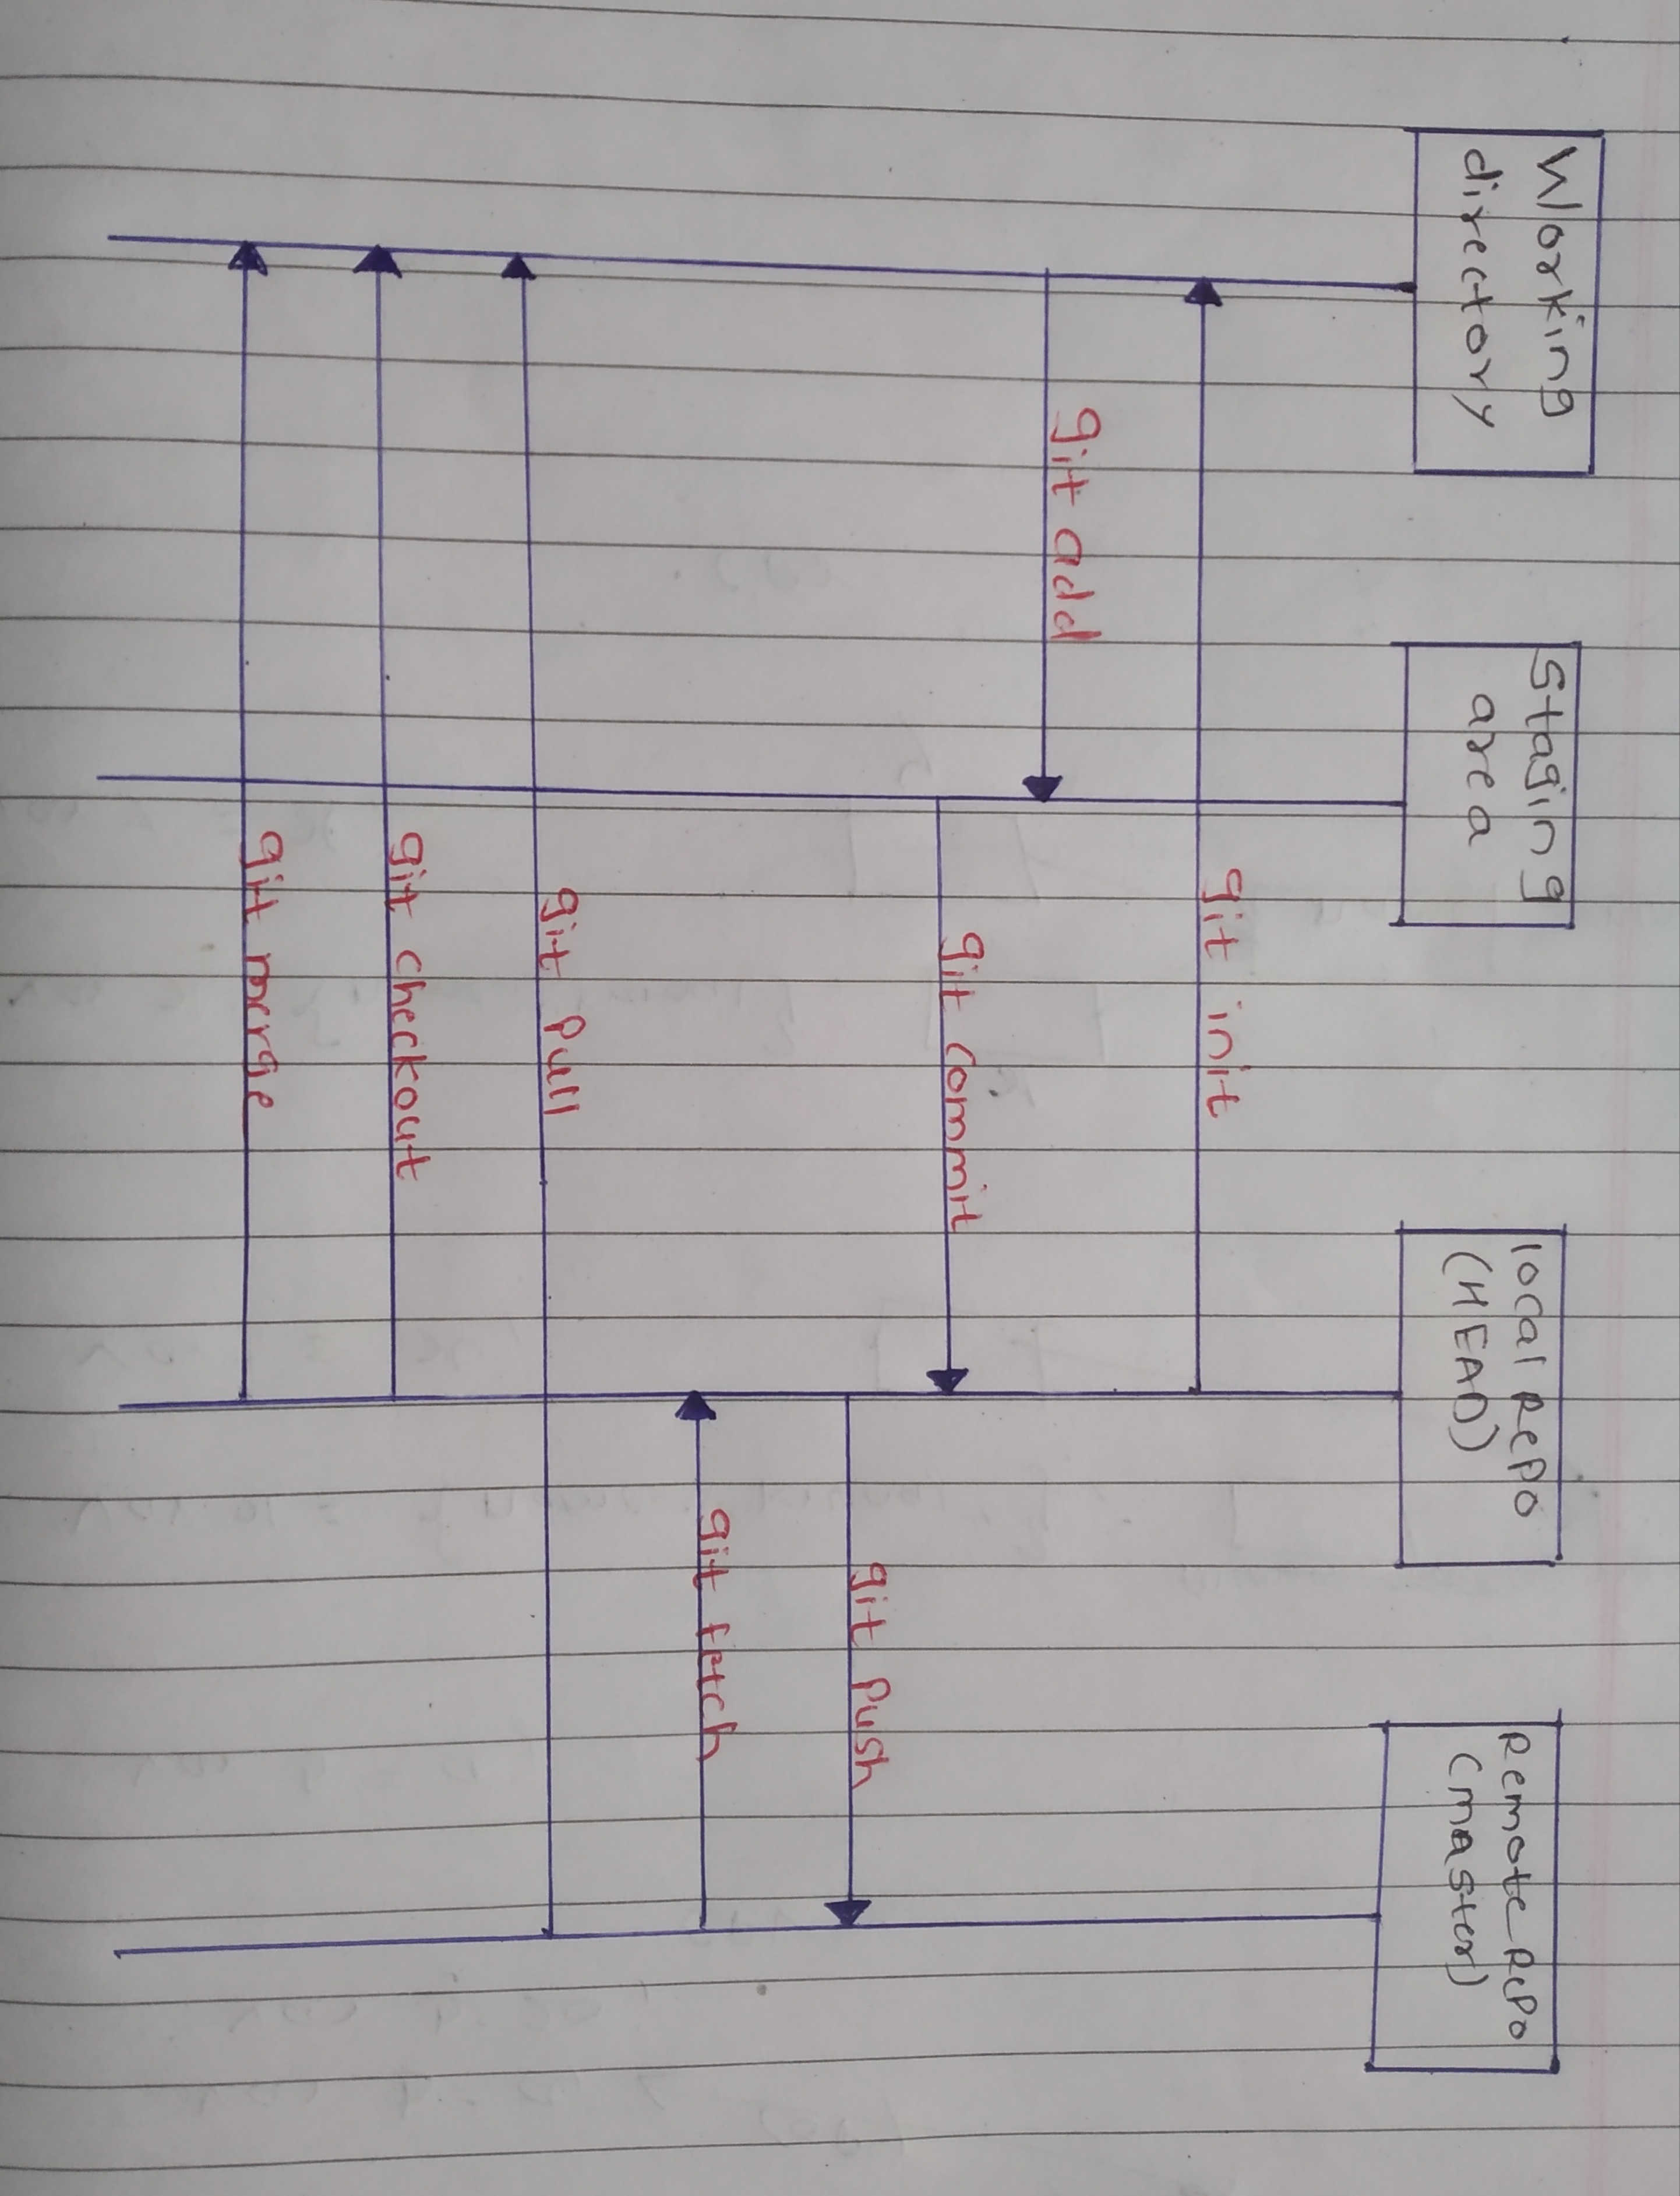 Working
directory
Staging
area
local Repo
(HEAD)
Remote Repo
(master)
git init
git add
git commit
git Push
git fetch
git Pull
git checkout
git merge